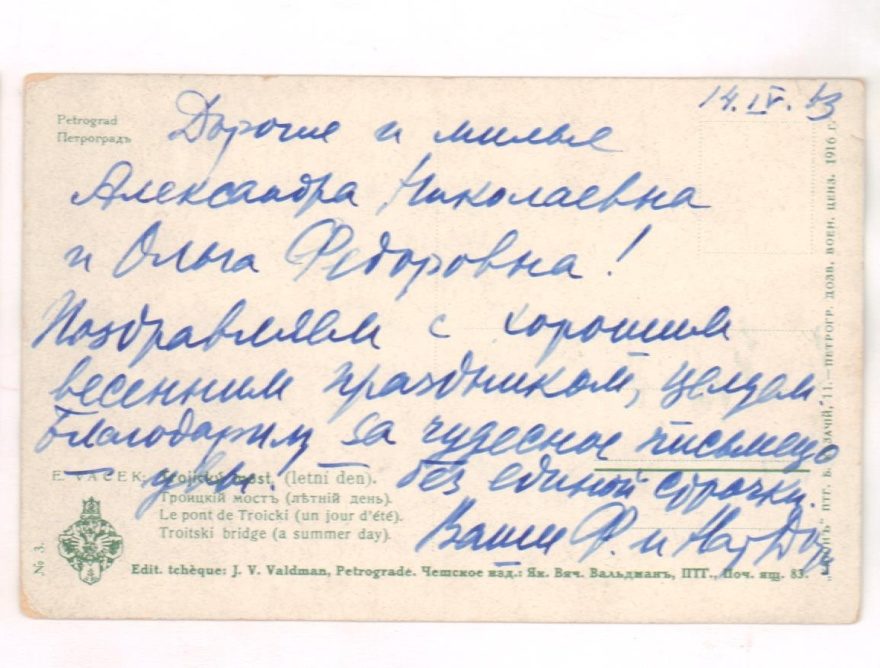 14.IV.
Petrograd
Петроградъ
Дорогие и милые
Александра Николаевна
и Ольга Федоровна!
Поздравляем с хорошим
весенним праздником, целуем
Благодарим за чудесное письмецо
увы! без единой строчки.
Ваши Ф. и
E. VACEK: Trojický most, (letní den).
Троицкій мостъ (лѣтній день).
Le pont de Troicki (un jour d'été).
Troitski bridge (a summer day).
№ 3.
Edit. tchèque: J. V. Valdman, Petrograde. Чешское изд.: Як. Вяч. Вальдманъ, ПТГ., Поч. ящ. 83.
ПТГ. 11.—ПЕТРОГР. ДОЗВ. ВОЕН. ЦЕНЗ. 1916 г.